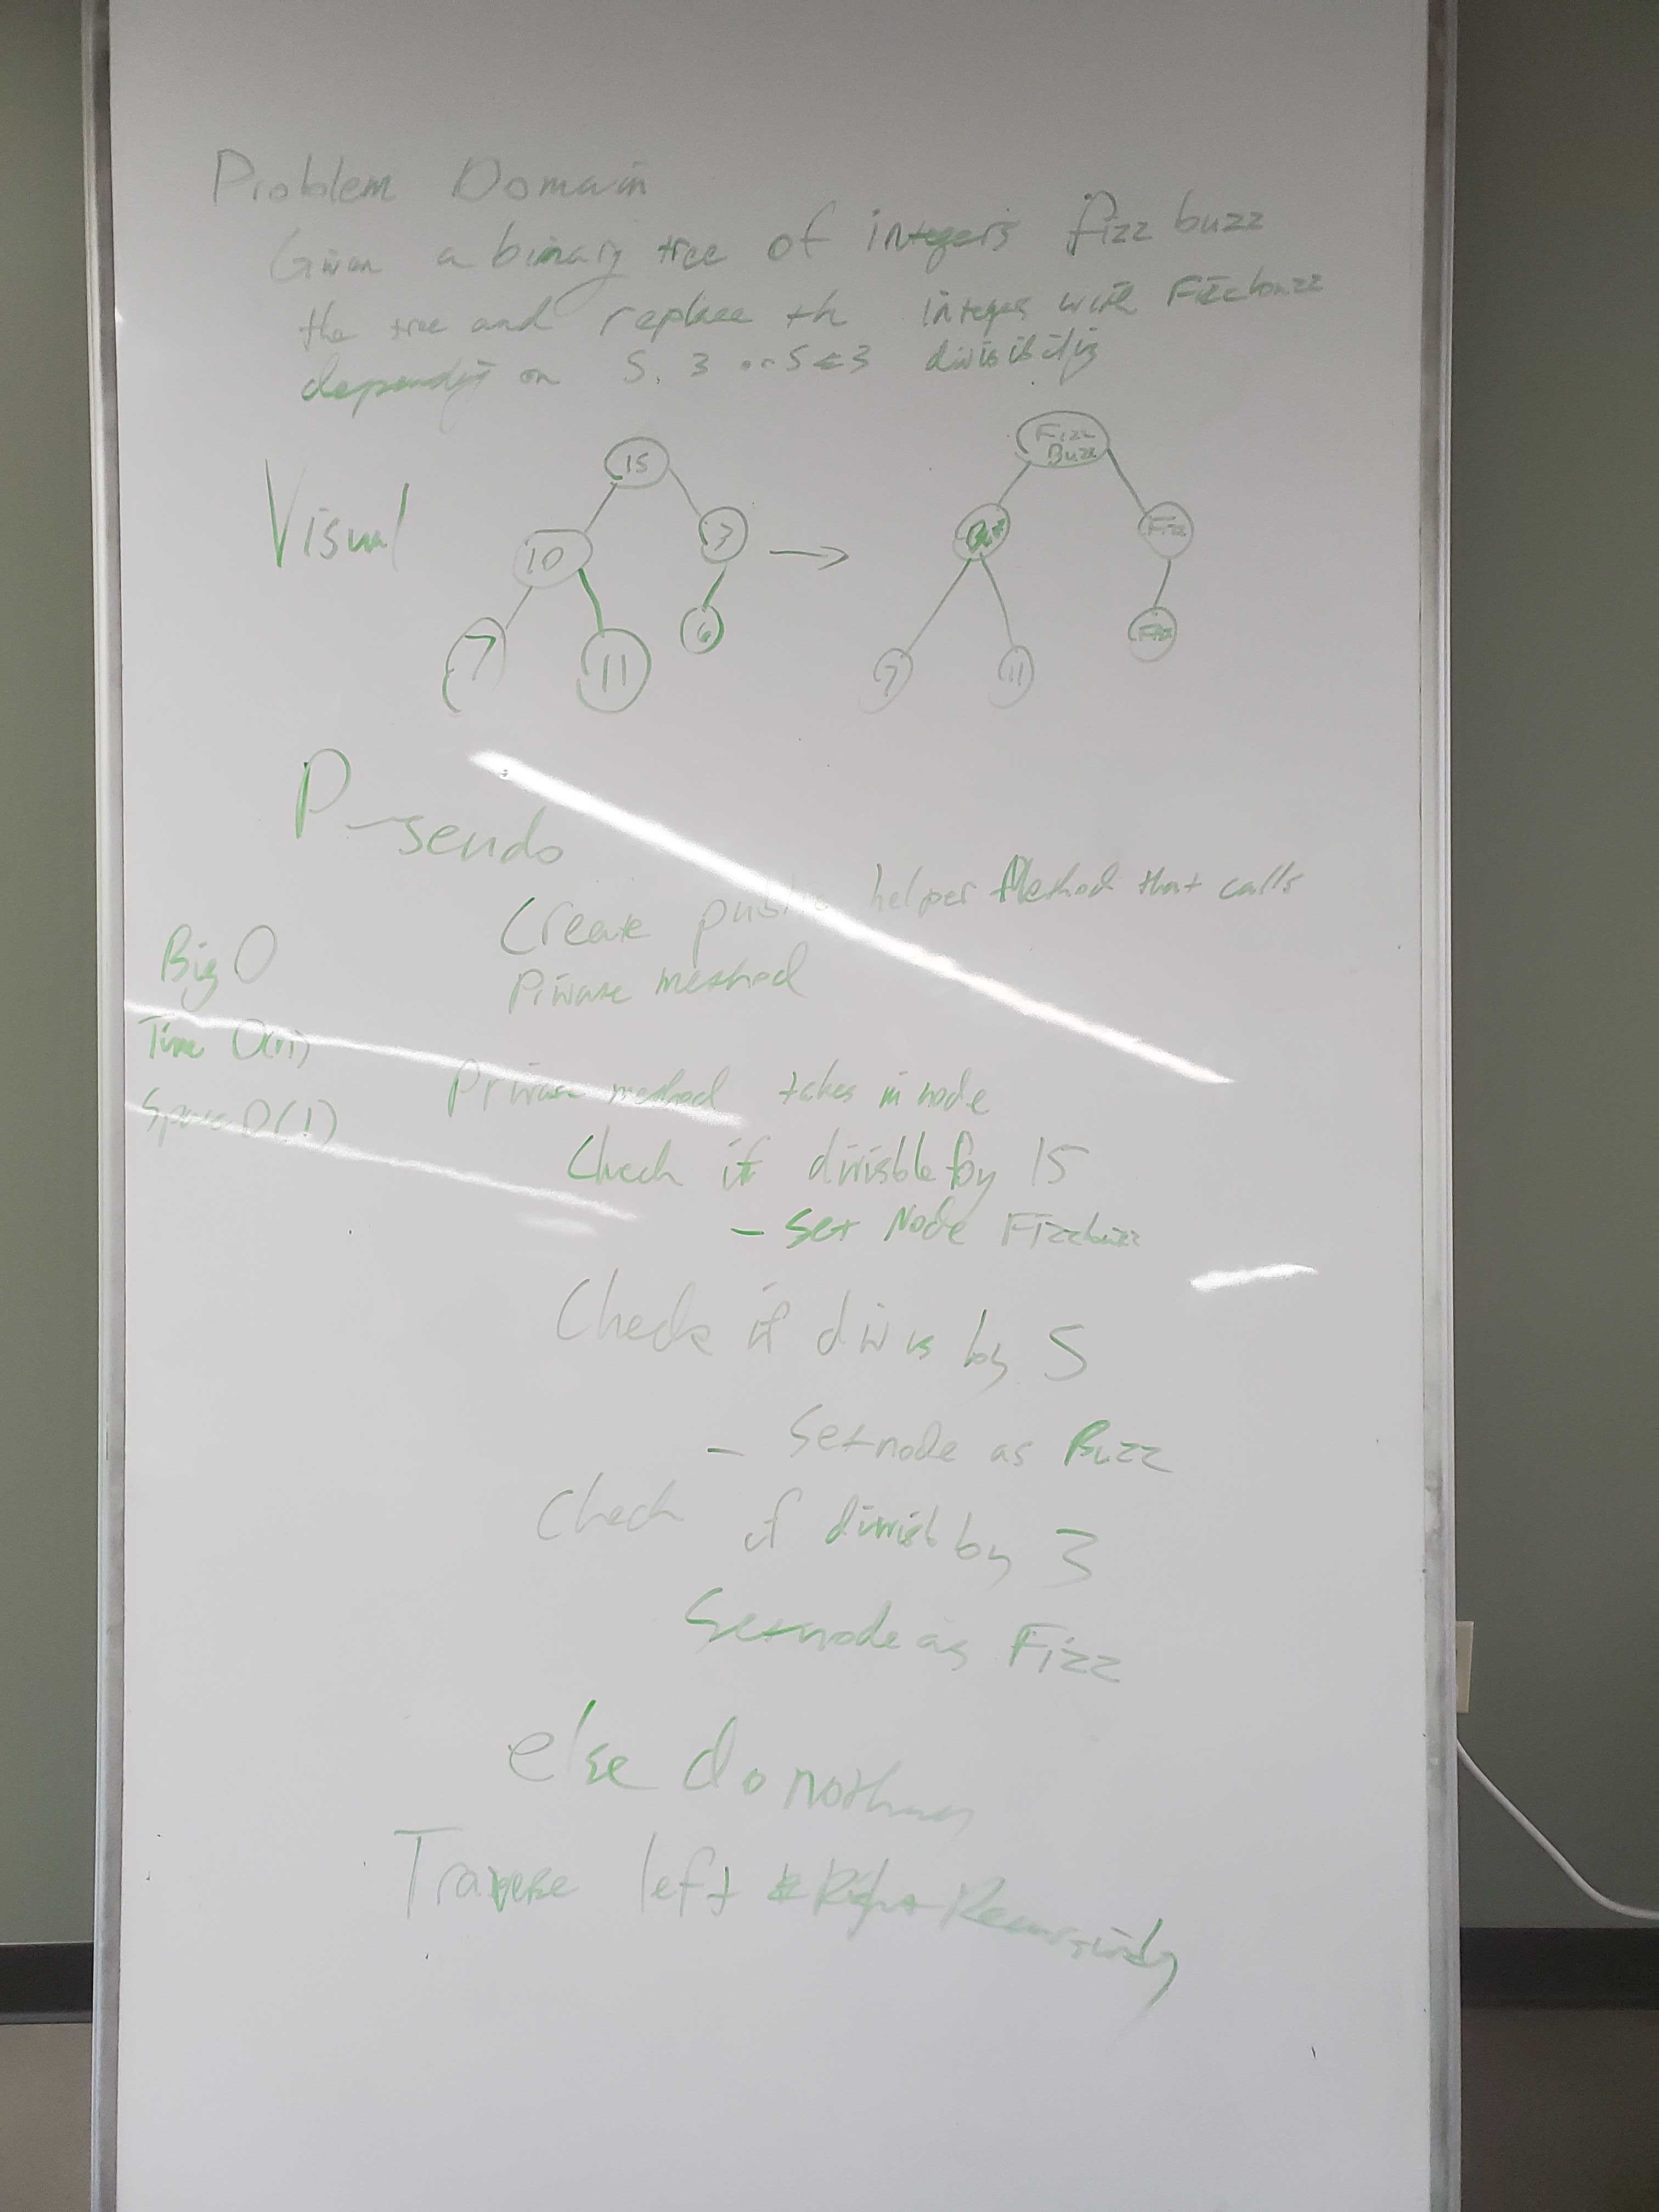 Problem Domain
Given a binary tree of integers fizz buzz
the tree and replace th integers with Fizzbuzz
depending on 5, 3 or 5 & 3 divisibility
Visual
15
10
3
7
11
6
Fizz
Buzz
Fizz
7
11
P-seudo
Create public helper Method that calls
Private method
Big O
Time O(n)
Space O(1)
Private method takes in node
Check if divisble by 15
- Set Node Fizzbuzz
Check if divis by 5
- Set node as Buzz
Check if divisb by 3
Set node as Fizz
else do nothing
Traverse left & Right Recursively